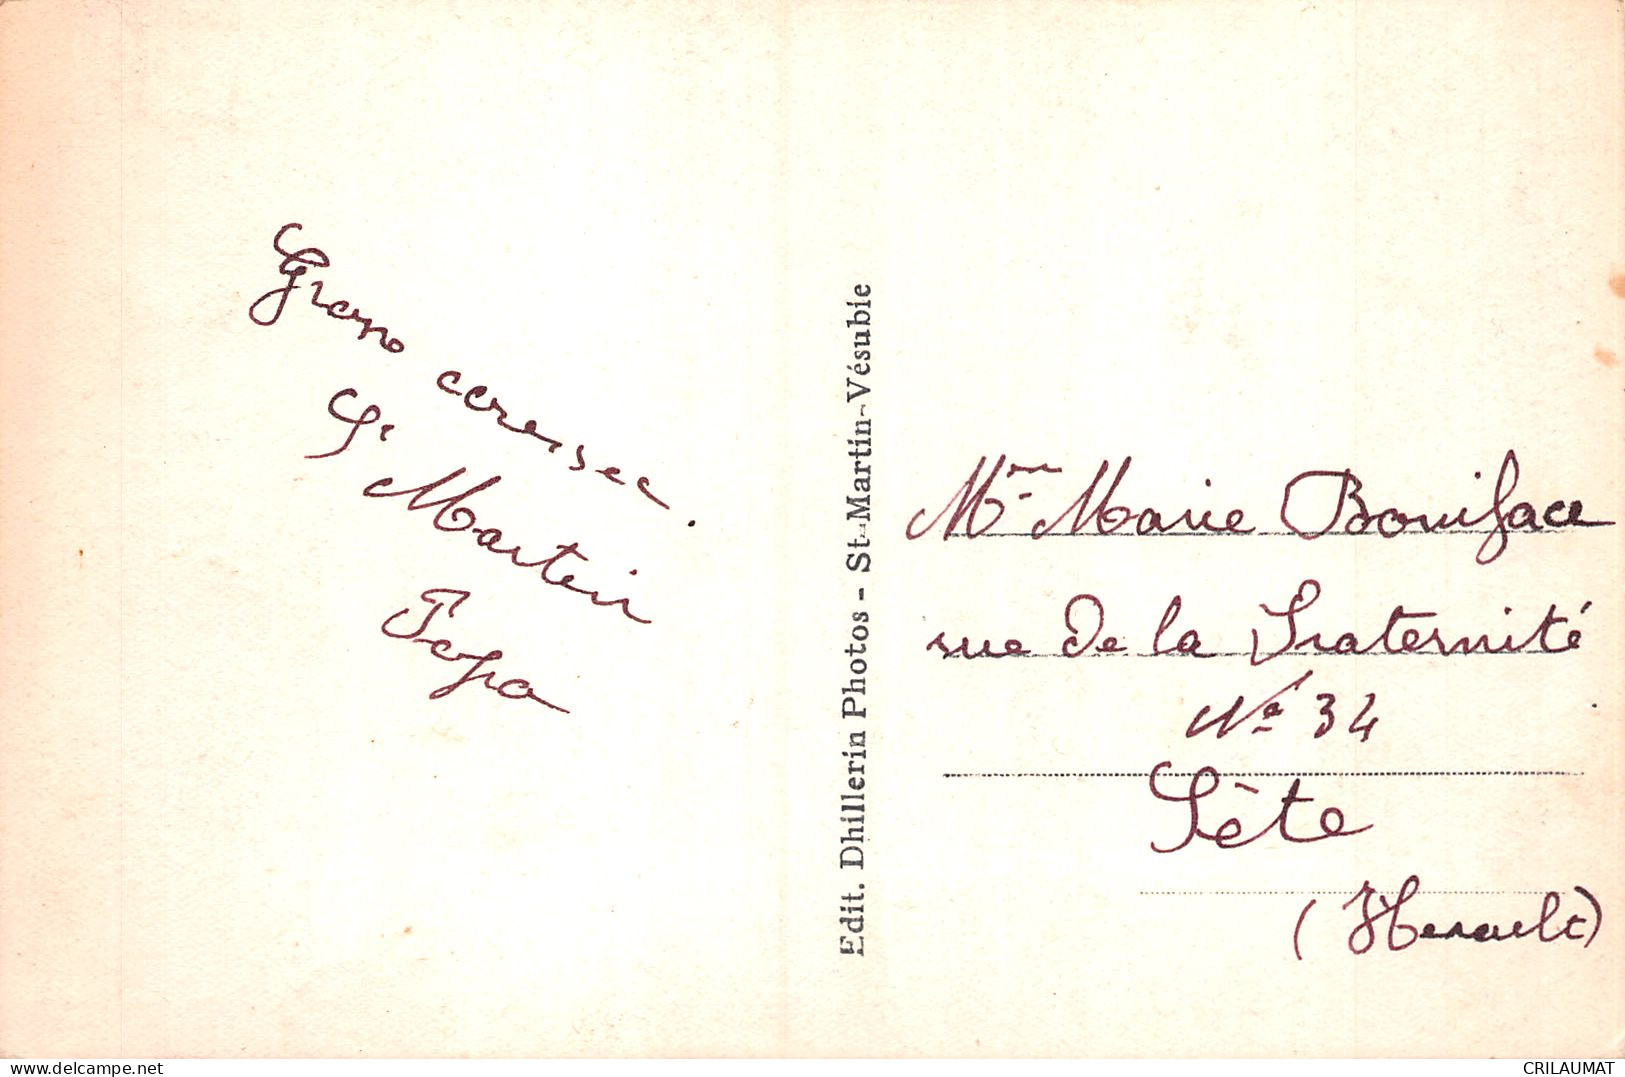 St Martin
Papa
Edit. Dhillerin Photos - St-Martin-Vésubie
Mme Marie Boniface
rue de la Fraternité
No 34
Sète
(Herault)
www.delcampe.net
CRILAUMAT